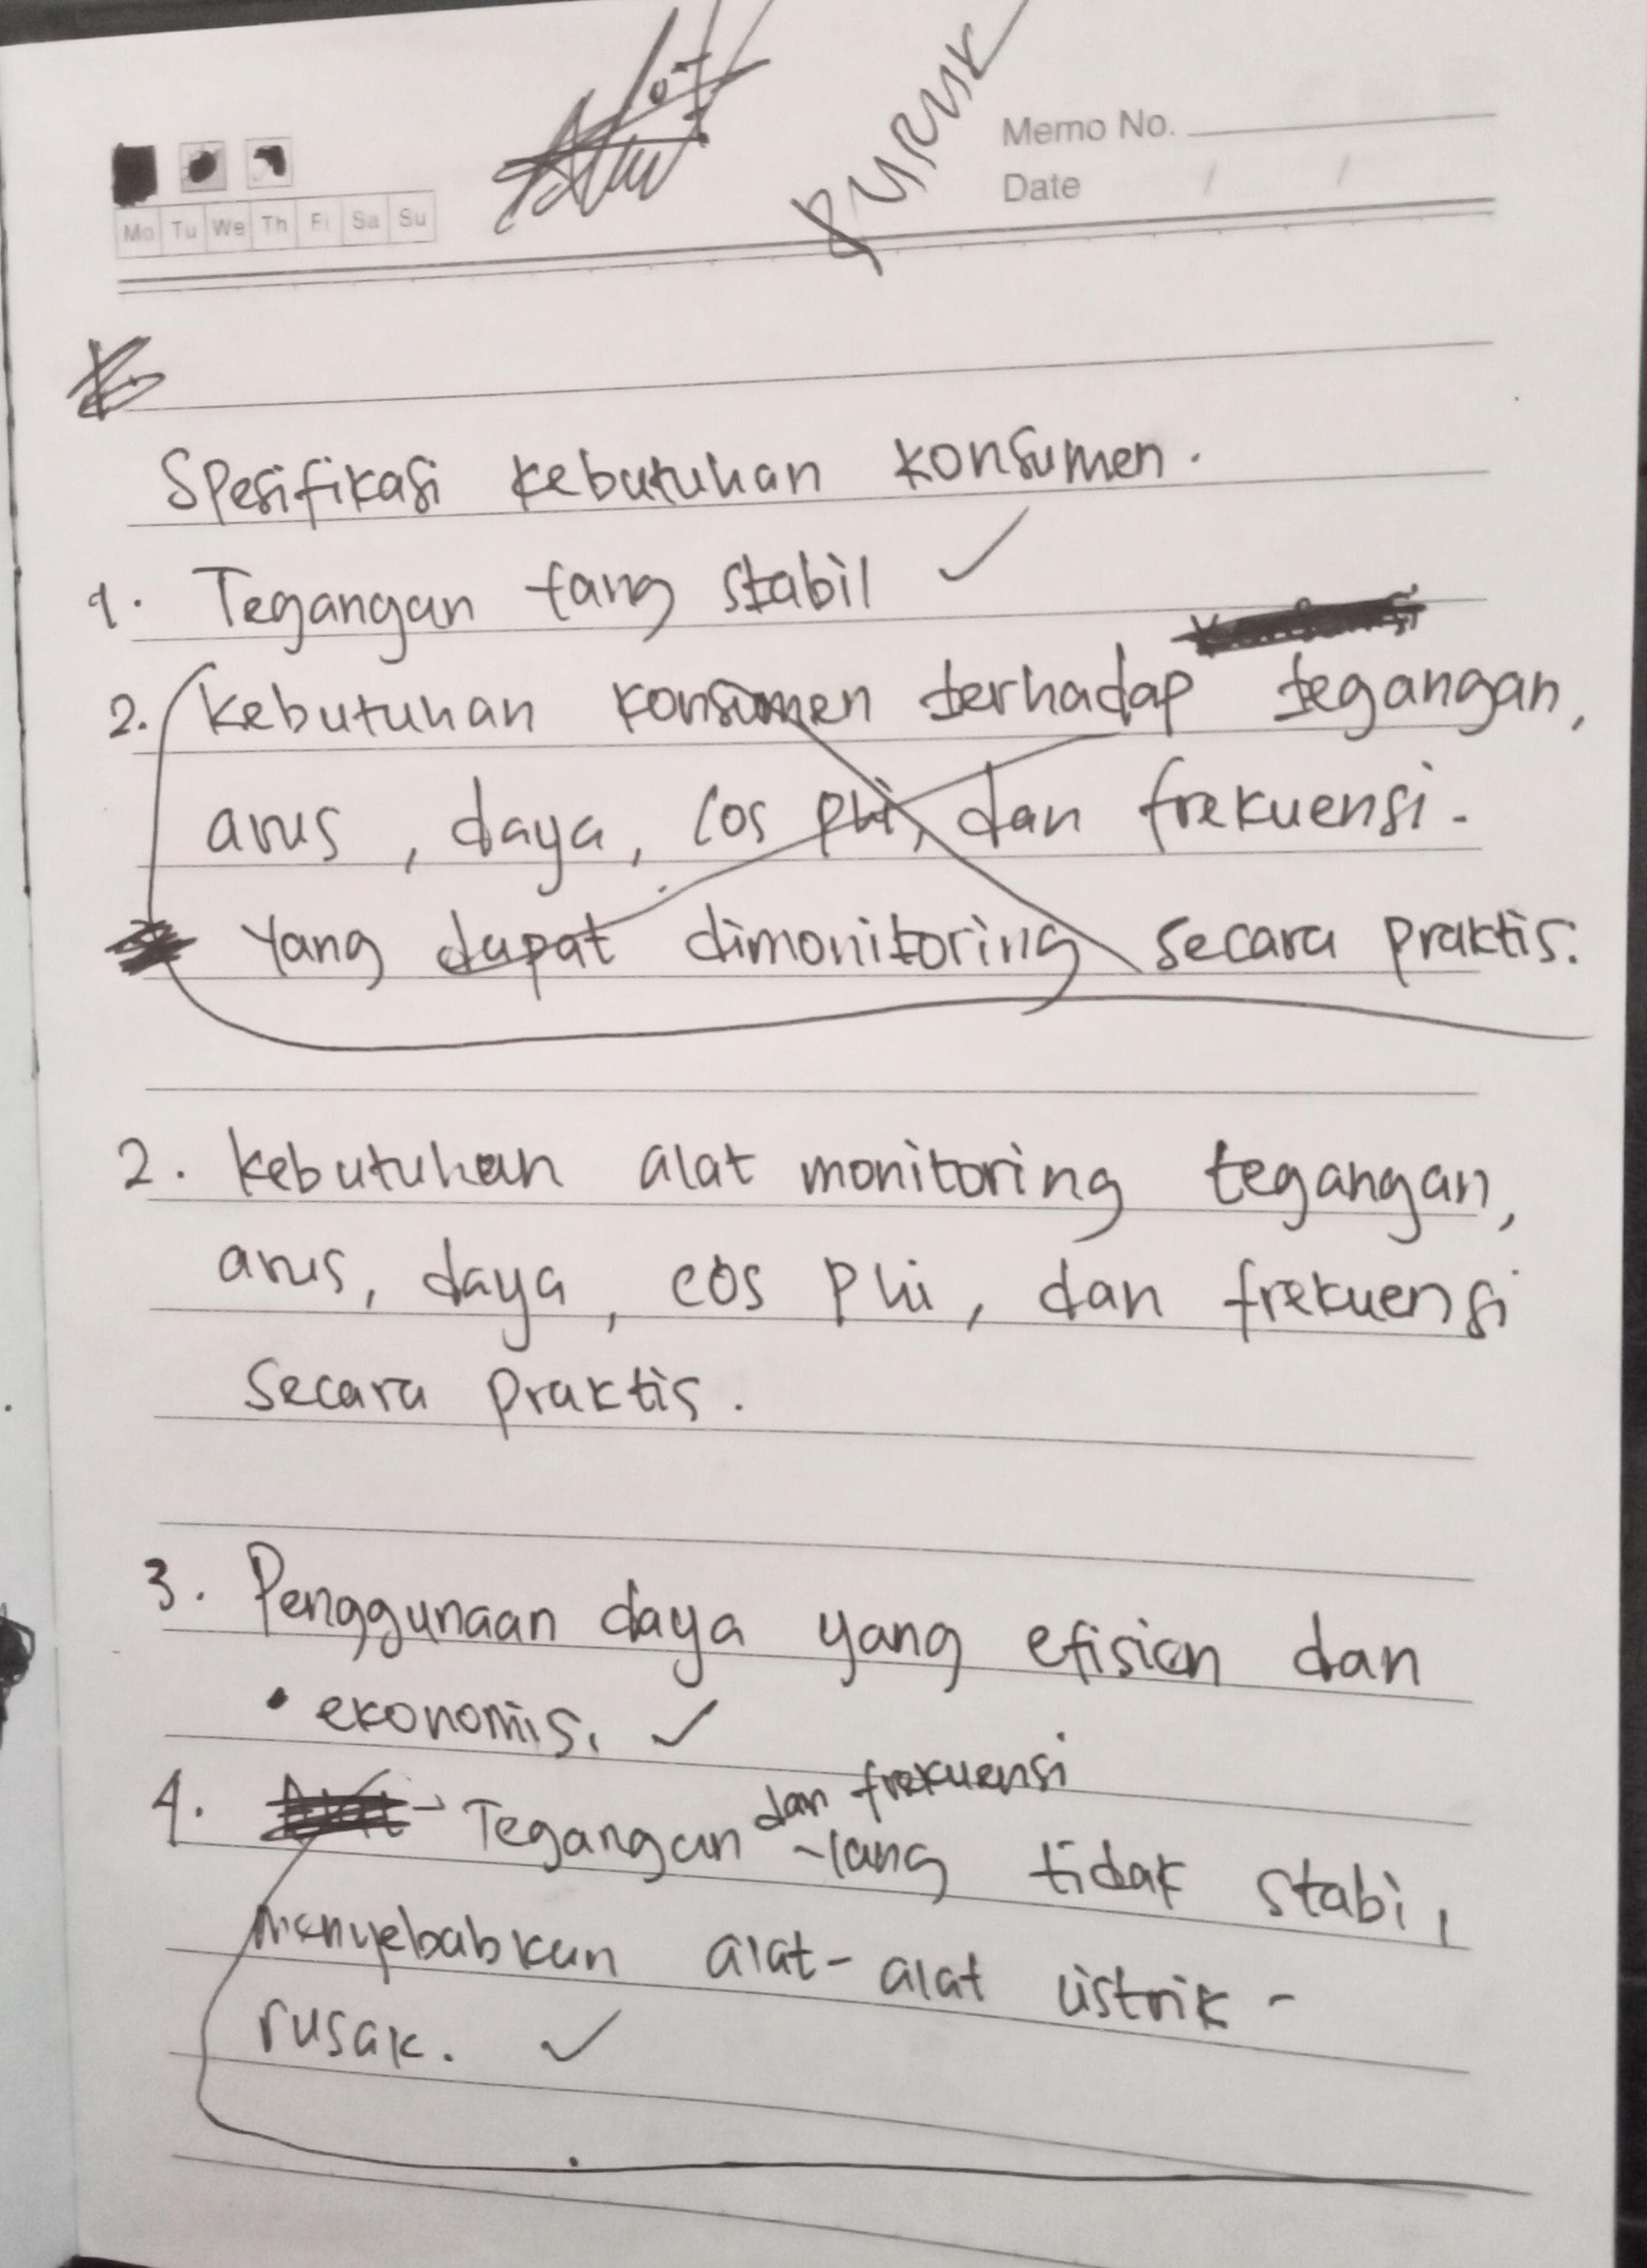 Memo No.
Date / /
Mo Tu We Th Fi Sa Su
Spesifikasi kebutuhan konsumen.
1. Tegangan yang stabil ✓
2. kebutuhan konsumen terhadap tegangan,
arus, daya, cos phi, dan frekuensi.
Yang dapat dimonitoring secara praktis.
2. kebutuhan alat monitoring tegangan,
arus, daya, cos phi, dan frekuensi
secara praktis.
3. Penggunaan daya yang efisien dan
• ekonomis. ✓
dan frekuensi
4. Tegangan yang tidak stabil
menyebabkan alat-alat listrik -
rusak. ✓